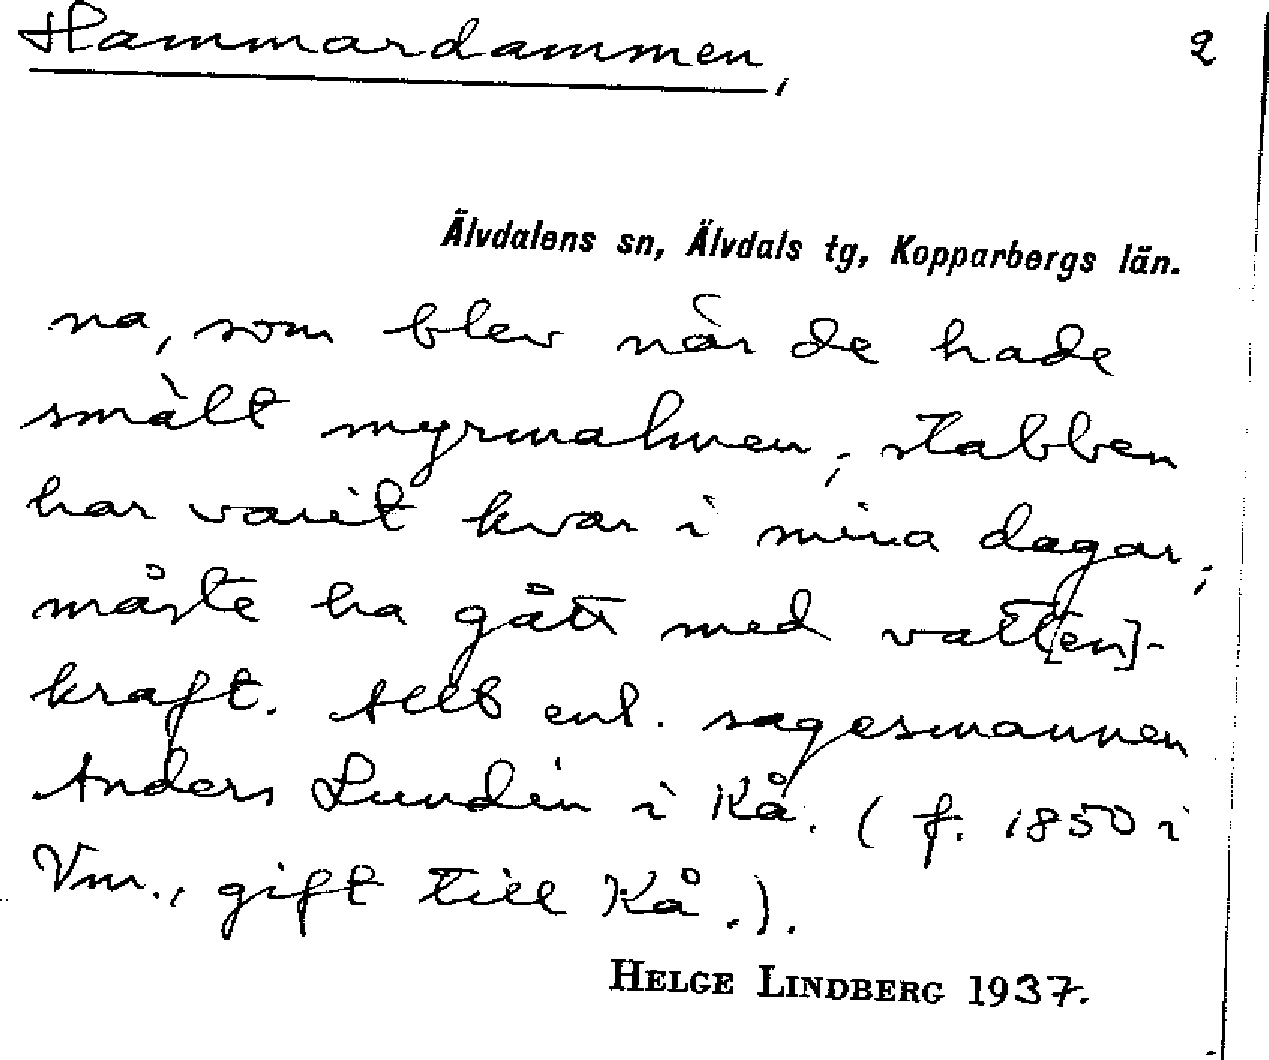 Hammardammen, 2
Älvdalens sn, Älvdals tg, Kopparbergs län.
na, som blev när de hade
smält myrmalmen; stabben
har varit kvar i mina dagar;
måste ha gått med vatt[en]-
kraft. Allt enl. sagesmannen
Anders Lundin i Kå. (f. 1850 i
Vm., gift till Kå.).
HELGE LINDBERG 1937.